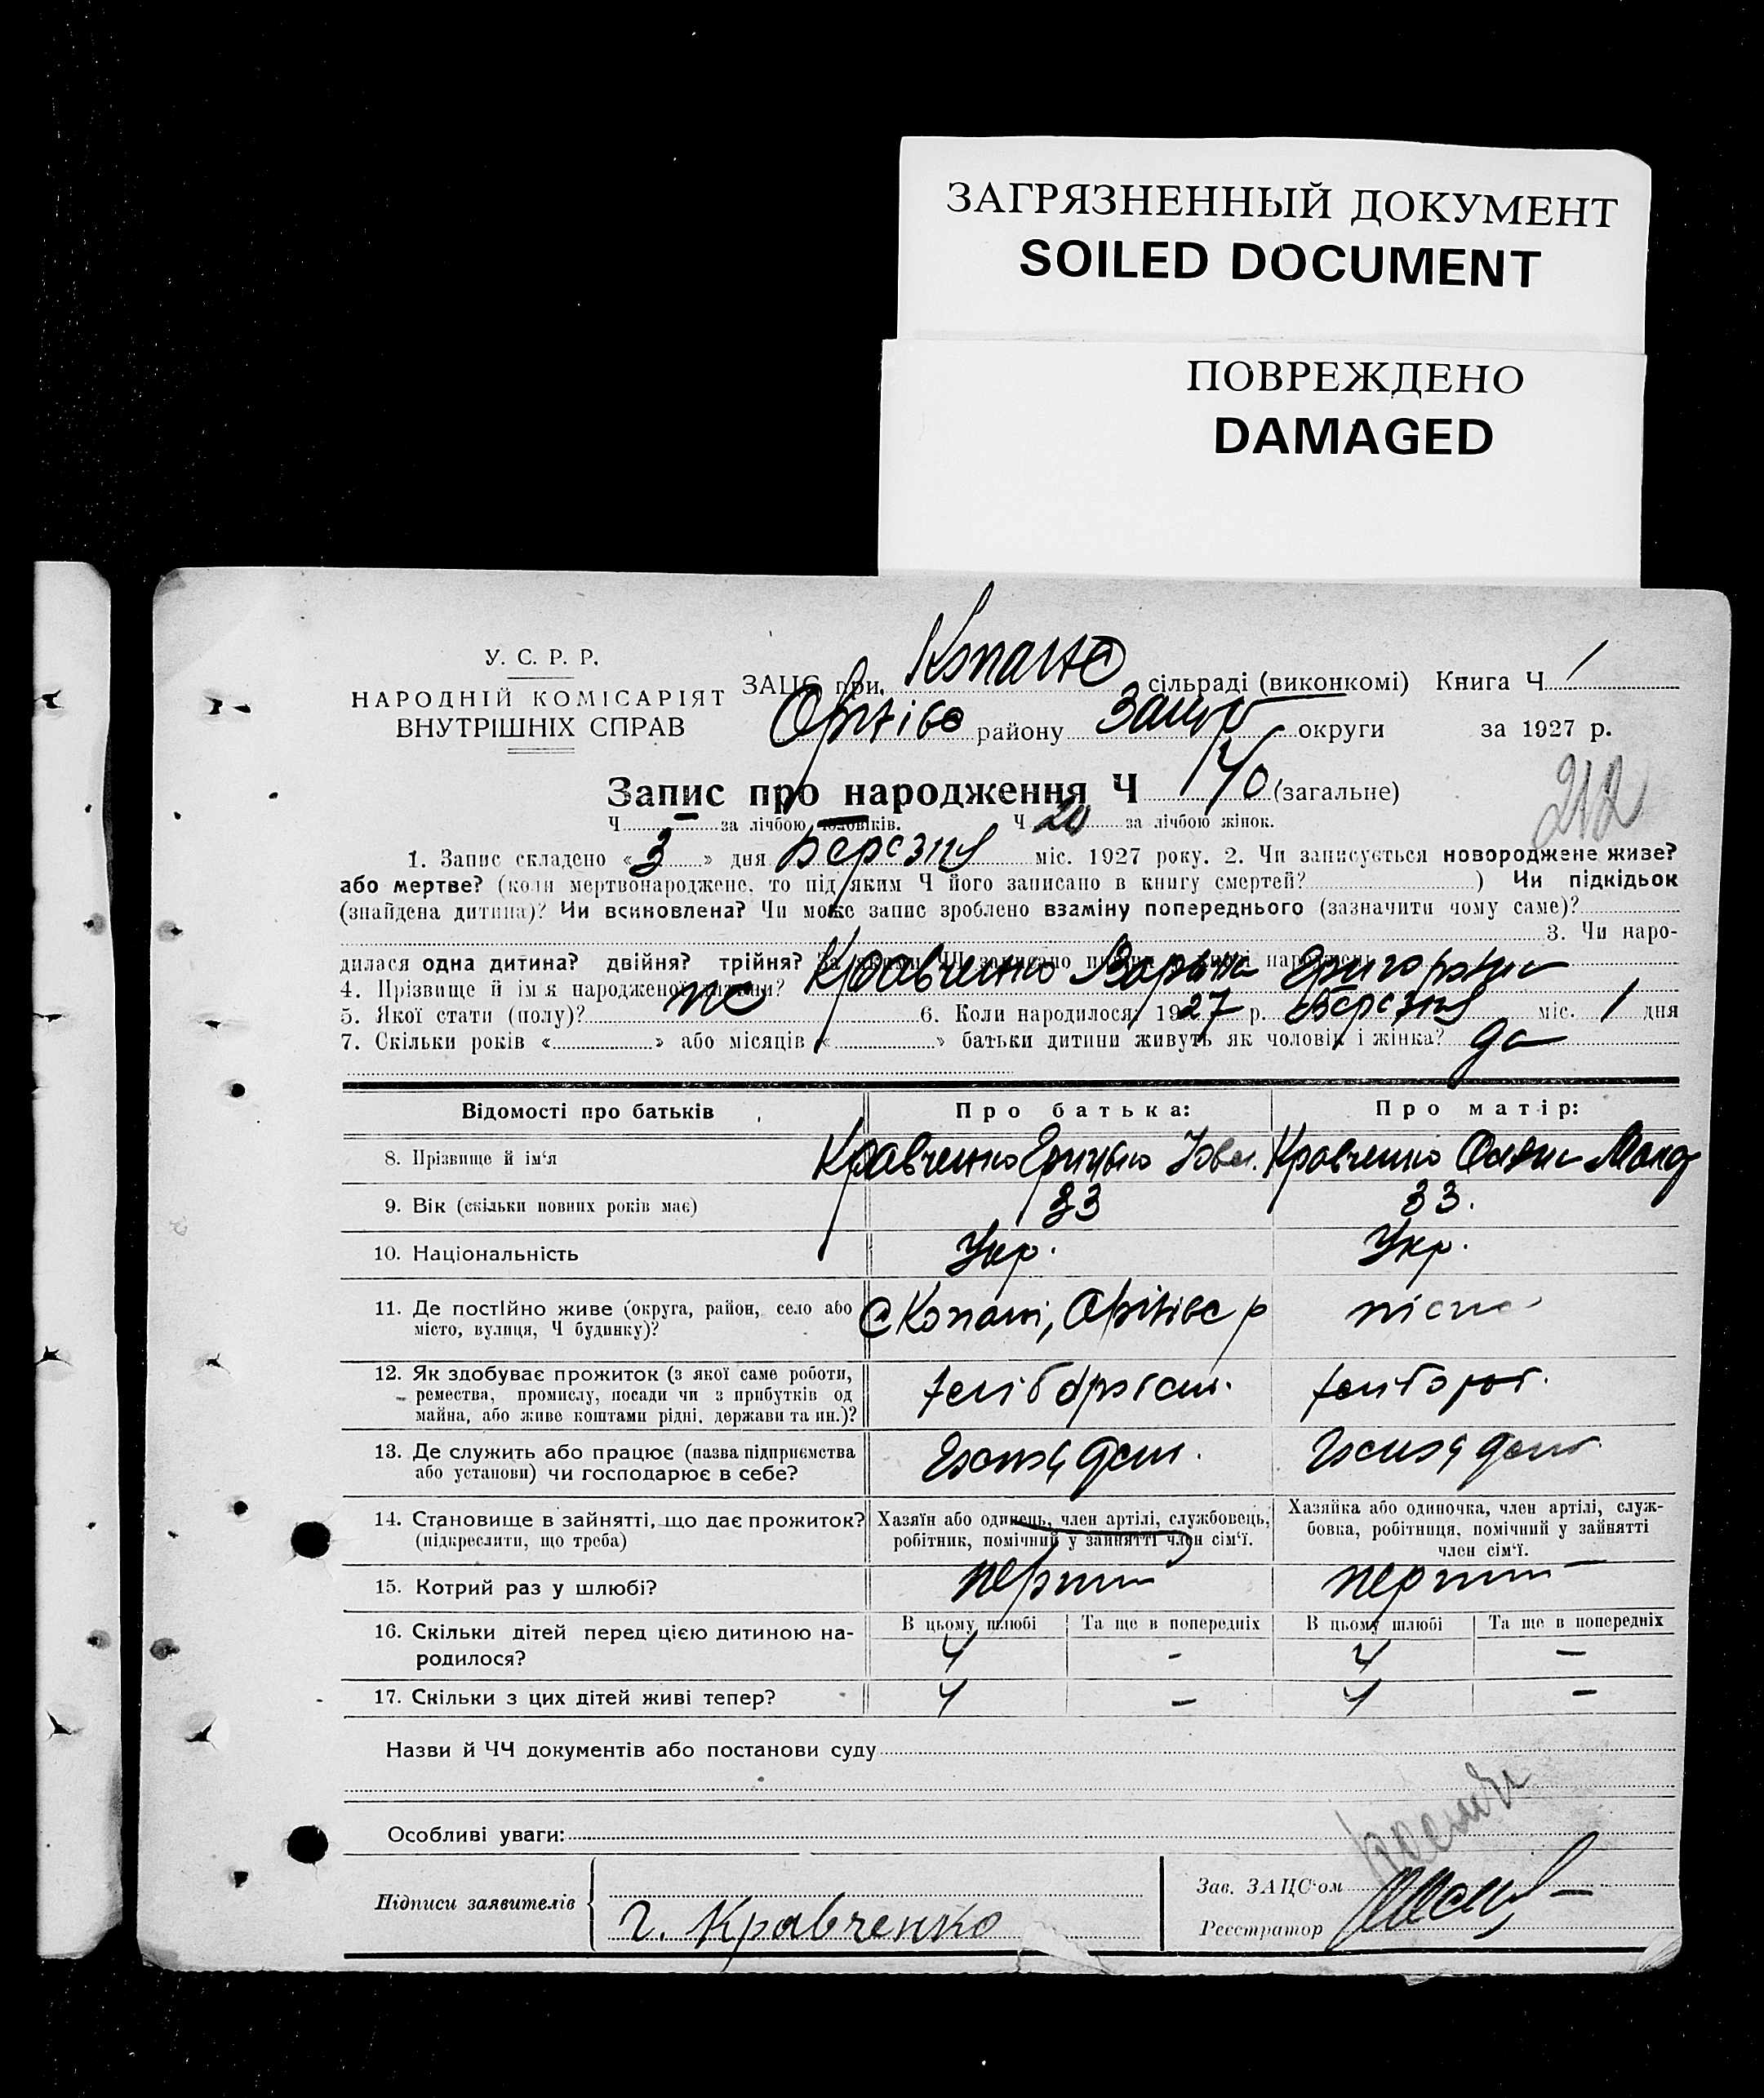 ЗАГРЯЗНЕННЫЙ ДОКУМЕНТ
SOILED DOCUMENT
ПОВРЕЖДЕНО
DAMAGED
У. С. Р. Р.
НАРОДНІЙ КОМІСАРІЯТ
ВНУТРІШНІХ СПРАВ
ЗАЦС при сільраді (виконкомі) Книга Ч 1
району округи за 1927 р.
Запис про народження Ч 40 (загальне)
212
Ч. - за лічбою чоловіків. Ч 20 за лічбою жінок.
1. Запис складено « 3 » дня Березня міс. 1927 року. 2. Чи записується новороджене живе?
або мертве? (коли мертвонароджене, то під яким Ч його записано в книгу смертей? ) Чи підкідьок
(знайдена дитина)? Чи всиновлена? Чи може запис зроблено взаміну попереднього (зазначити чому саме)?
3. Чи наро-
дилася одна дитина? двійня? трійня? За якими ЧЧ записано
4. Прізвище й ім'я народженої дитини? Кравченко
5. Якої стати (полу)? 6. Коли народилося: 1927 р. Березня міс. 1 дня
7. Скільки років « » або місяців « » батьки дитини живуть як чоловік і жінка? да
Відомості про батьків Про батька: Про матір:
8. Прізвище й ім'я Кравченко Кравченко
9. Вік (скільки повних років має) 33 33.
10. Національність Укр. Укр.
11. Де постійно живе (округа, район, село або
місто, вулиця, Ч будинку)?
12. Як здобуває прожиток (з якої саме роботи,
ремества, промислу, посади чи з прибутків од
майна, або живе коштами рідні, держави та ин.)?
13. Де служить або працює (назва підприємства
або установи) чи господарює в себе?
14. Становище в зайнятті, що дає прожиток?
(підкреслити, що треба)
Хазяїн або одинець, член артілі, службовець,
робітник, помічний у зайнятті член сім'ї.
Хазяйка або одиночка, член артілі, служ-
бовка, робітниця, помічний у зайнятті
член сім'ї.
15. Котрий раз у шлюбі?
В цьому шлюбі Та ще в попередніх В цьому шлюбі Та ще в попередніх
16. Скільки дітей перед цією дитиною на-
родилося? 4 - 4 -
17. Скільки з цих дітей живі тепер? 4 - 4 -
Назви й ЧЧ документів або постанови суду
Особливі уваги:
Підписи заявителів
Г. Кравченко
Зав. ЗАЦС'ом
Реєстратор